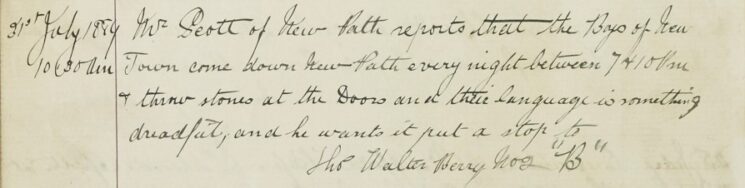 31st July 1889 Mr Scott of New Path reports that the Boys of New
10.30 Am Town come down New Path every night between 7 & 10 Pm
& throw stones at the Doors and their language is something
dreadful, and he wants it put a stop to
Thos Walter Berry No 2 "B"